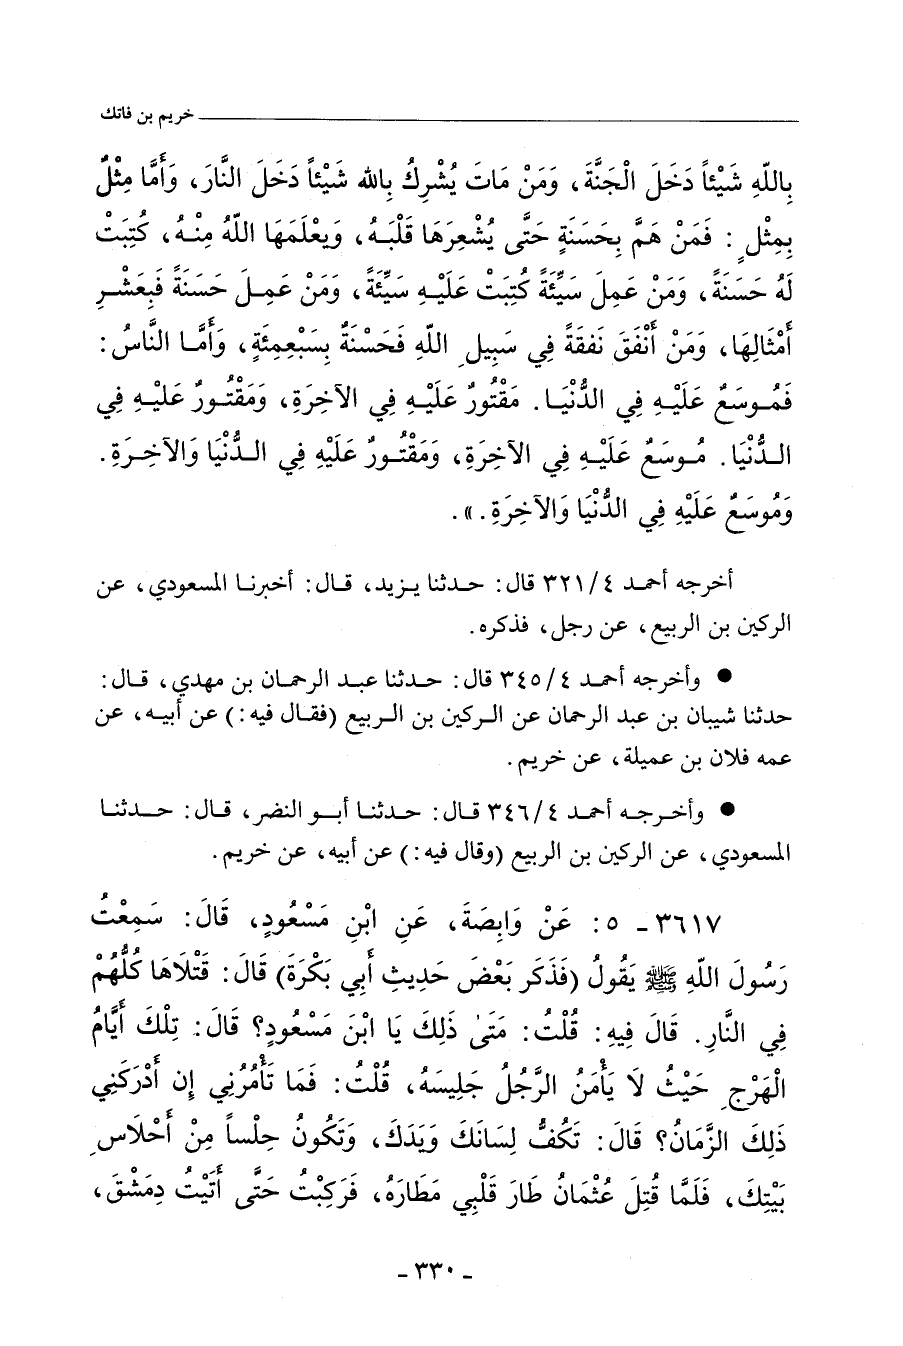 خريم بن فاتك
بِاللّهِ شَيْئاً دَخَلَ الْجَنَّةَ، وَمَنْ مَاتَ يُشْرِكُ بِاللهِ شَيْئاً دَخَلَ النَّارَ، وَأَمَّا مِثْلٌ
بِمِثْلٍ: فَمَنْ هَمَّ بِحَسَنَةٍ حَتَّى يُشْعِرَهَا قَلْبَهُ، وَيعْلَمَهَا اللّهُ مِنْهُ، كُتِبَتْ
لَهُ حَسَنَةً، وَمَنْ عَمِلَ سَيِّئَةً كُتِبَتْ عَلَيْهِ سَيِّئَةً، وَمَنْ عَمِلَ حَسَنَةً فَبِعَشْرِ
أَمْثَالِهَا، وَمَنْ أَنْفَقَ نَفقَةً فِي سَبِيلِ اللّهِ فَحَسْنَةٌ بِسَبْعِمِئَةٍ، وَأَمَّا النَّاسُ:
فَمُوسَعٌ عَلَيْهِ فِي الدُّنْيَا. مَقْتُورٌ عَلَيْهِ فِي الآخِرَةِ، وَمَقْتُورٌ عَلَيْهِ فِي
الدُّنْيَا. مُوسَعٌ عَلَيْهِ فِي الآخِرَةِ، وَمَقْتُورٌ عَلَيْهِ فِي الدُّنْيَا وَالآخِرَةِ.
وَمُوسَعٌ عَلَيْهِ فِي الدُّنْيَا وَالآخِرَةِ.».
أخرجه أحمد ٤/ ٣٢١ قال: حدثنا يزيد، قال: أخبرنا المسعودي، عن
الركين بن الربيع، عن رجل، فذكره.
● وأخرجه أحمد ٤/ ٣٤٥ قال: حدثنا عبد الرحمان بن مهدي، قال:
حدثنا شيبان بن عبد الرحمان عن الركين بن الربيع (فقال فيه:) عن أبيه، عن
عمه فلان بن عميلة، عن خريم.
● وأخرجه أحمد ٤/ ٣٤٦ قال: حدثنا أبو النضر، قال: حدثنا
المسعودي، عن الركين بن الربيع (وقال فيه:) عن أبيه، عن خريم.
٣٦١٧ـ ٥: عَنْ وَابِصَةَ، عَنِ ابْنِ مَسْعُودٍ، قَالَ: سَمِعْتُ
رَسُولَ اللّهِ ﷺ يَقُولُ (فَذَكَر بَعْضَ حَدِيثِ أَبِي بَكْرَةَ) قَالَ: قَتْلَاهَا كُلُّهُمْ
فِي النَّارِ. قَالَ فِيهِ: قُلْتُ: مَتَىٰ ذَلِكَ يَا ابْنَ مَسْعُودٍ؟ قَالَ: تِلْكَ أَيَّامُ
الْهَرْجِ حَيْثُ لَا يَأْمَنُ الرَّجُلُ جَلِيسَهُ، قُلْتُ: فَمَا تَأْمُرُنِي إِن أَدْرَكَنِي
ذَلِكَ الزَّمَانُ؟ قَالَ: تَكُفُّ لِسَانَكَ وَيَدَكَ، وَتَكُونُ حِلْساً مِنْ أَحْلَاسِ
بَيْتِكَ، فَلَمَّا قُتِلَ عُثْمَانُ طَارَ قَلْبِي مَطَارَهُ، فَرَكِبْتُ حَتَّى أَتَيْتُ دِمَشْقَ،
ـ ٣٣٠ ـ